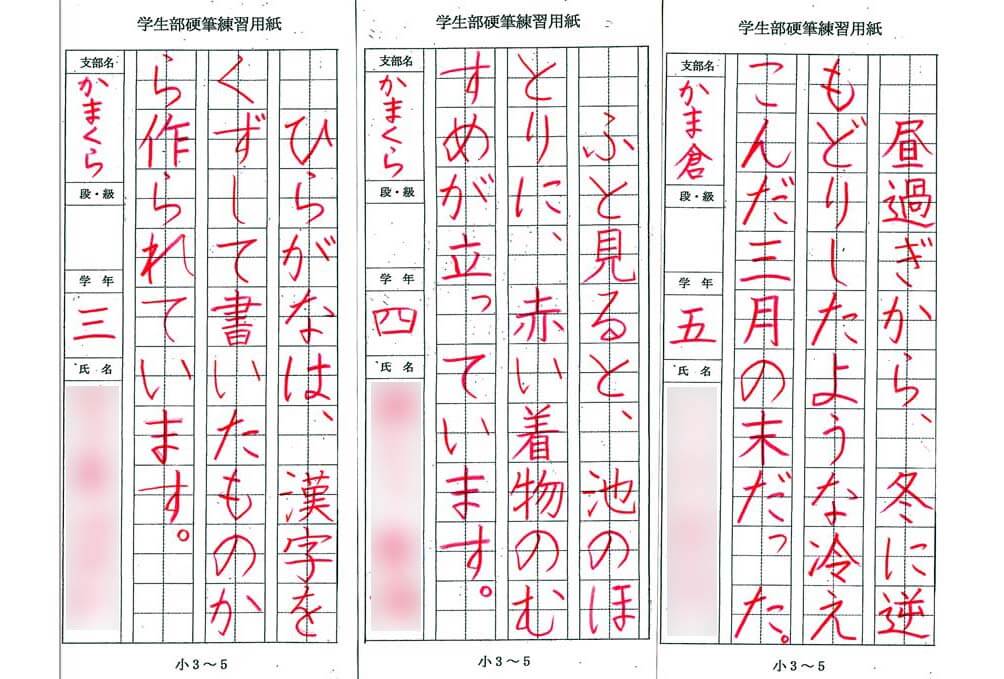 学生部硬筆練習用紙
昼過ぎから、冬に逆
もどりしたような冷え
こんだ三月の末だった。
支部名
かま倉
段・級
学年
五
氏名
小3～5
学生部硬筆練習用紙
ふと見ると、池のほ
とりに、赤い着物のむ
すめが立っています。
支部名
かまくら
段・級
学年
四
氏名
小3～5
学生部硬筆練習用紙
ひらがなは、漢字を
くずして書いたものか
ら作られています。
支部名
かまくら
段・級
学年
三
氏名
小3～5